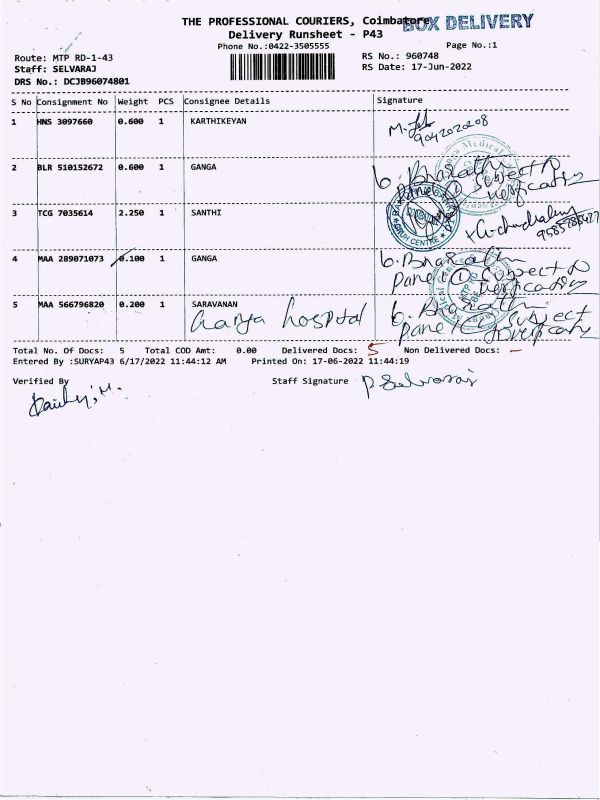 THE PROFESSIONAL COURIERS, Coimbatore
BOX DELIVERY
Delivery Runsheet - P43
Phone No.:0422-3505555
Page No.:1
Route: MTP RD-1-43
RS No.: 960748
Staff: SELVARAJ
RS Date: 17-Jun-2022
DRS No.: DCJB96074801
S No Consignment No Weight PCS Consignee Details Signature
1 HNS 3097660 0.600 1 KARTHIKEYAN
9042020208
2 BLR 510152672 0.600 1 GANGA
b. Bharathi
3 TCG 7035614 2.250 1 SANTHI
4 MAA 289071073 0.100 1 GANGA
b. Bharathi
Panel ① Subject to
Verification
5 MAA 566796820 0.200 1 SARAVANAN
Ganga hospital
b. Bharathi
Panel Subject
Total No. Of Docs: 5 Total COD Amt: 0.00 Delivered Docs: 5 Non Delivered Docs: -
Entered By :SURYAP43 6/17/2022 11:44:12 AM Printed On: 17-06-2022 11:44:19
Verified By Staff Signature P Selvaraj